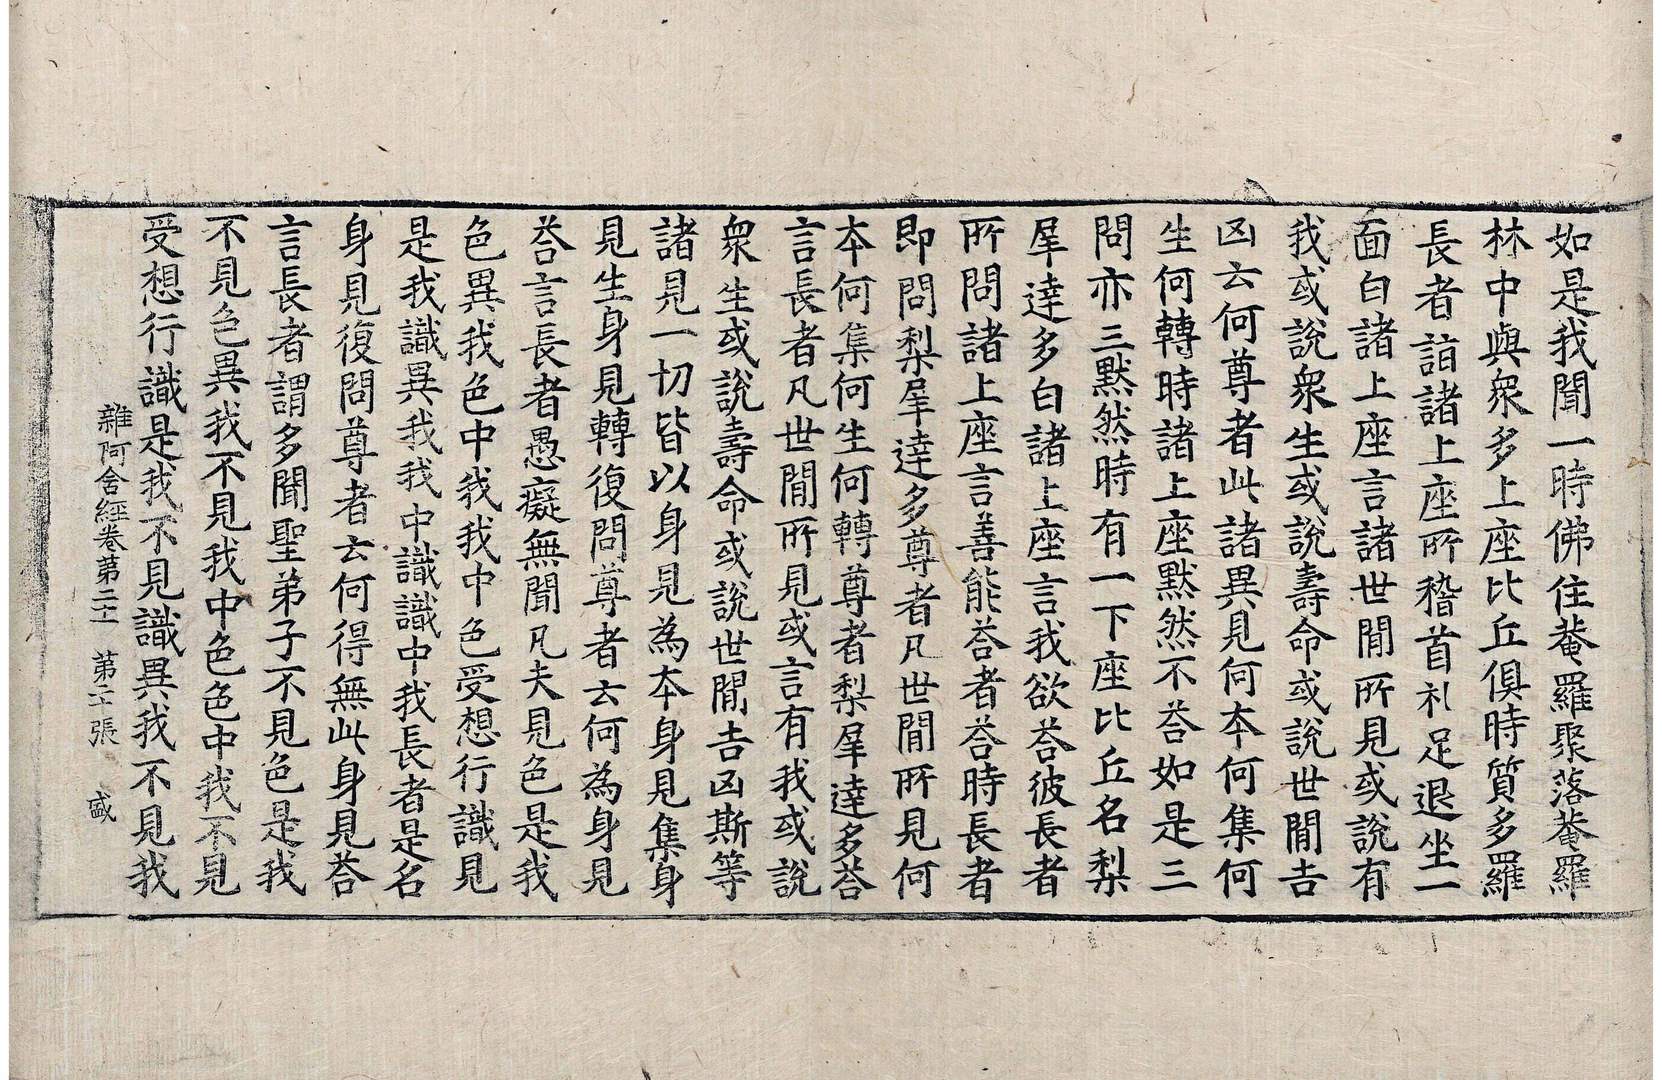 如是我聞一時佛住菴羅聚落菴羅
林中與衆多上座比丘俱時質多羅
長者詣諸上座所稽首礼足退坐一
面白諸上座言諸世間所見或說有
我或說衆生或說壽命或說世間吉
凶云何尊者此諸異見何本何集何
生何轉時諸上座默然不荅如是三
問亦三默然時有一下座比丘名梨
犀達多白諸上座言我欲荅彼長者
所問諸上座言善能荅者荅時長者
即問梨犀達多尊者凡世間所見何
本何集何生何轉尊者梨犀達多荅
言長者凡世間所見或言有我或說
衆生或說壽命或說世間吉凶斯等
諸見一切皆以身見為本身見集身
見生身見轉復問尊者云何為身見
荅言長者愚癡無聞凡夫見色是我
色異我色中我我中色受想行識見
是我識異我我中識識中我長者是名
身見復問尊者云何得無此身見荅
言長者謂多聞聖弟子不見色是我
不見色異我不見我中色色中我不見
受想行識是我不見識異我不見我
雜阿含經卷第二十一　第二十張　盛